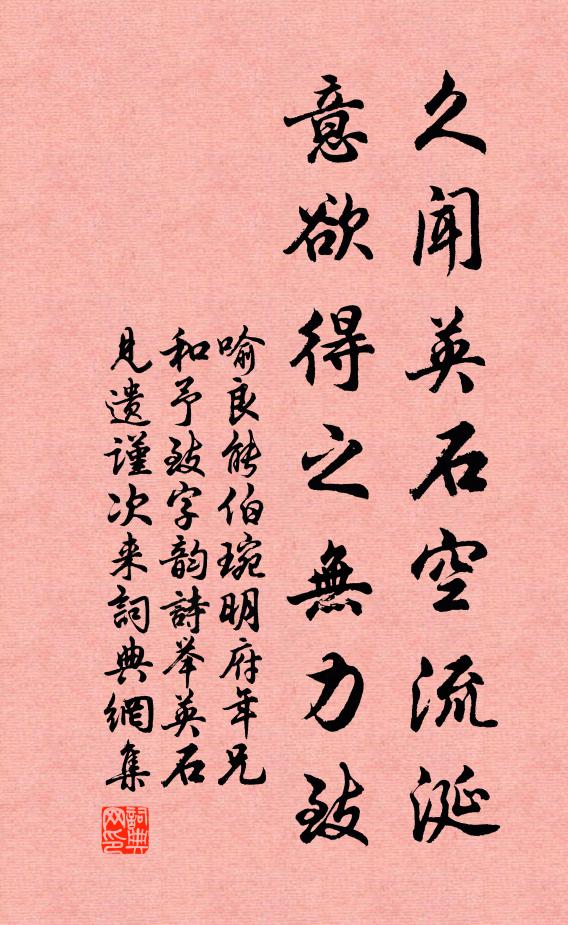 久闻英石空流涎
意欲得之無力致
喻良能伯琬明府年兄
和予致字韵詩举英石
見遗谨次来詞典網集
詞典网印